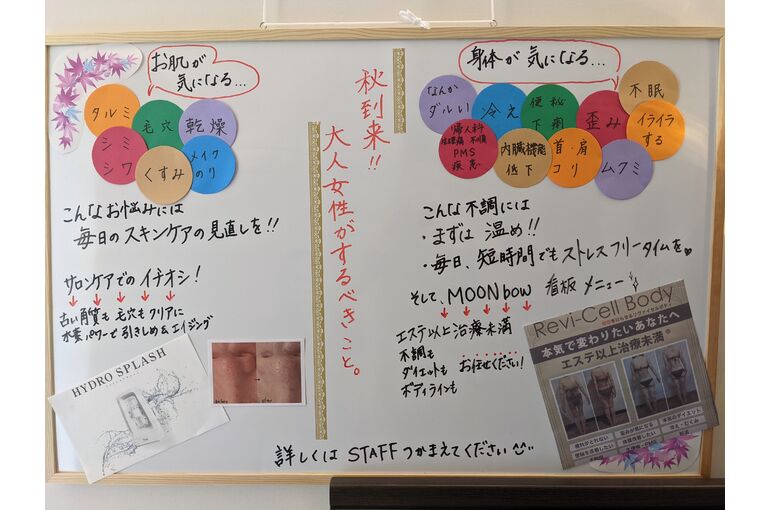 お肌が
気になる…
タルミ
毛穴
乾燥
シミ
シワ
くすみ
メイク
のり
こんなお悩みには
毎日のスキンケアの見直しを!!
サロンケアでのイチオシ!
古い角質も毛穴もクリアに
水素パワーで引きしめ&エイジング
HYDRO SPLASH
秋到来!!
大人女性がするべきこと。
身体が気になる…
なんか
ダルい
冷え
便秘
下痢
歪み
不眠
イライラ
する
婦人科
生理痛・不順
PMS
疾患
内臓機能
低下
首・肩
コリ
ムクミ
こんな不調には
・まずは 温め!!
・毎日、短時間でもストレスフリータイムを♡
そして、MOONbow 看板メニュー
エステ以上治療未満
不調も
ダイエットも お任せください!
ボディラインも
Revi-Cell Body
本気で変わりたいあなたへ
エステ以上治療未満
疲れがとれない
歪みが気になる
本気のダイエット
便秘を改善したい
体質改善したい
冷え・むくみ
詳しくは STAFF つかまえてください